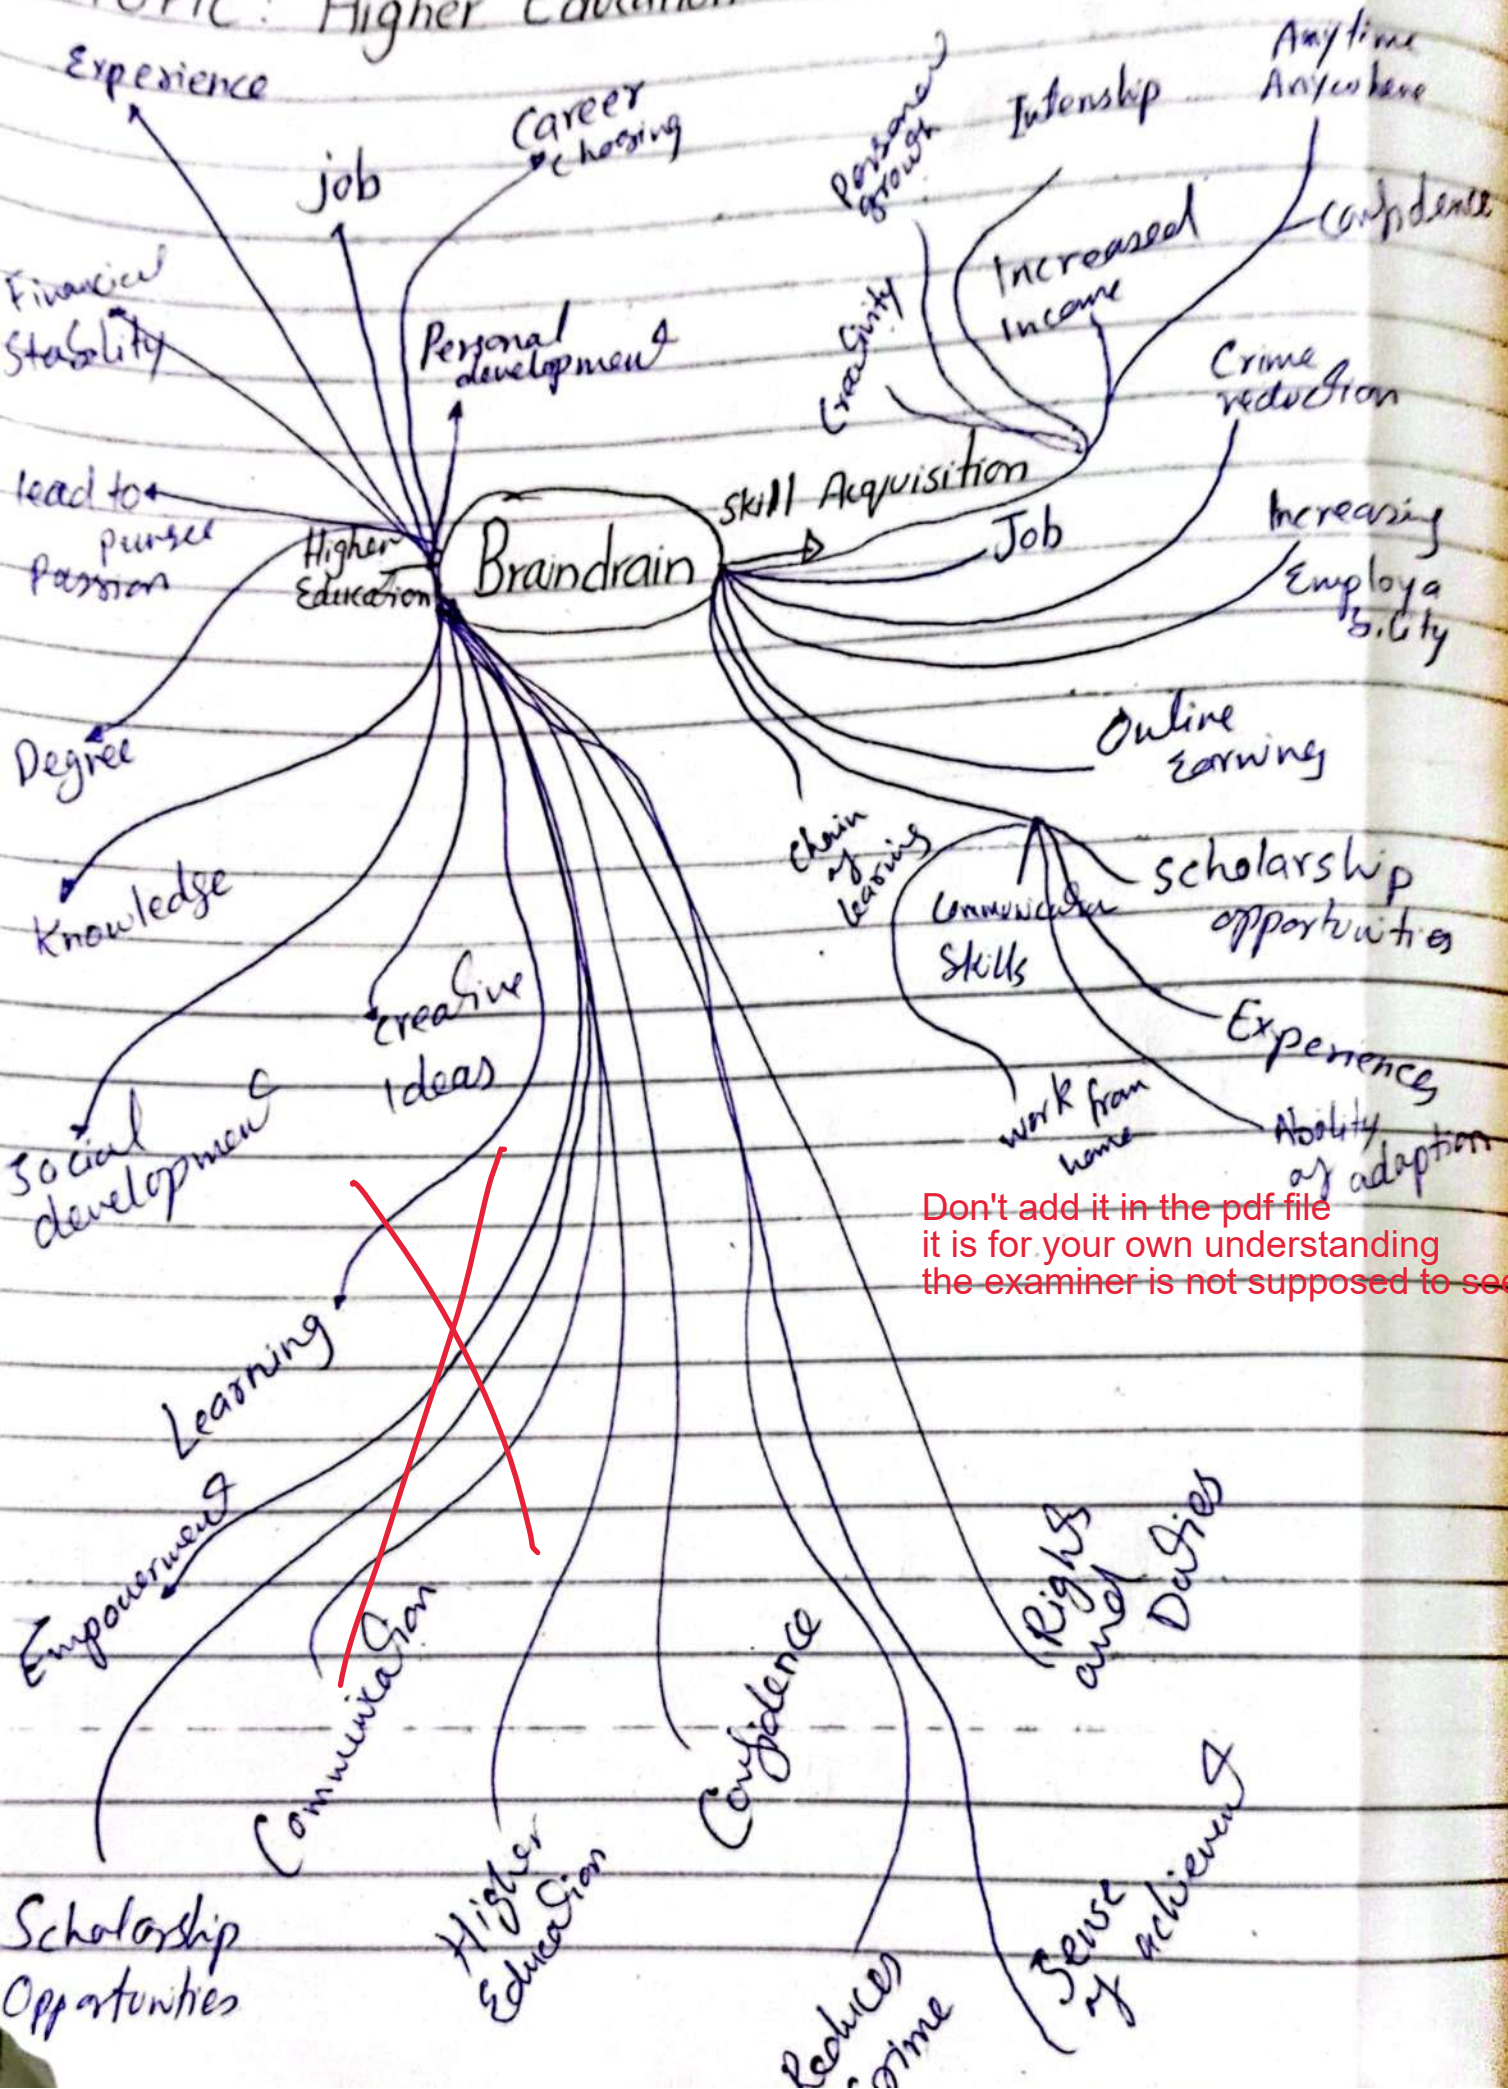 Topic: Higher Education
Experience
job
Career
choosing
Personal
growth
Intenship
Anytime
Anywhere
Confidense
Financial
Stability
Personal
development
Creativity
Increased
Income
Crime
reduction
lead to
pursue
Passion
Higher
Education
Braindrain
Skill Acquisition
Job
Increasing
Employa
bility
Degree
Online
Earning
Chain
of
learning
Knowledge
Communication
Skills
Scholarship
opportunities
Creative
Ideas
Experiences
Social
development
work from
home
Ability
of adaption
Don't add it in the pdf file
it is for your own understanding
the examiner is not supposed to see
Learning
Empowerment
Communication
Confidence
Rights
and
Duties
Scholarship
Opportunities
Higher
Education
Reduces
Crime
Sense
of achievement